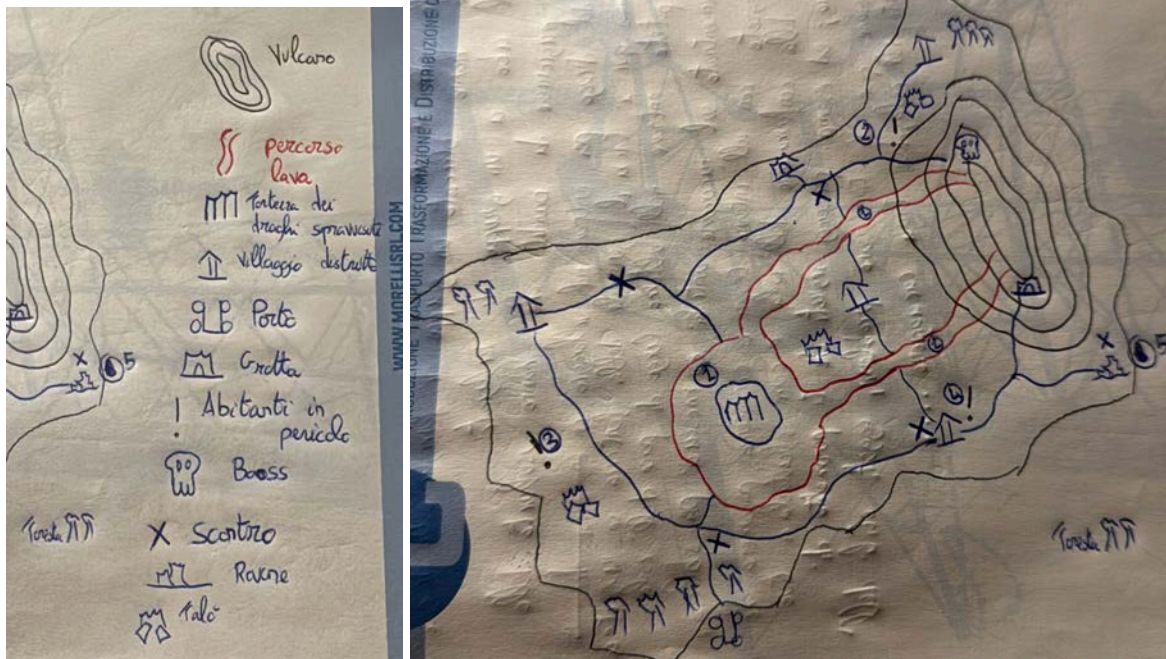 Vulcano
percorso
lava
Fortezza dei
draghi
villaggio distrutto
Porto
Grotta
! Abitanti in
pericolo
Booss
X Scontro
Rovine
Falò
Foresta
5
WWW.MORELLISRL.COM
TRASPORTO TRASFORMAZIONE E DISTRIBUZIONE
2
!
1
3
!
5
X
Foresta